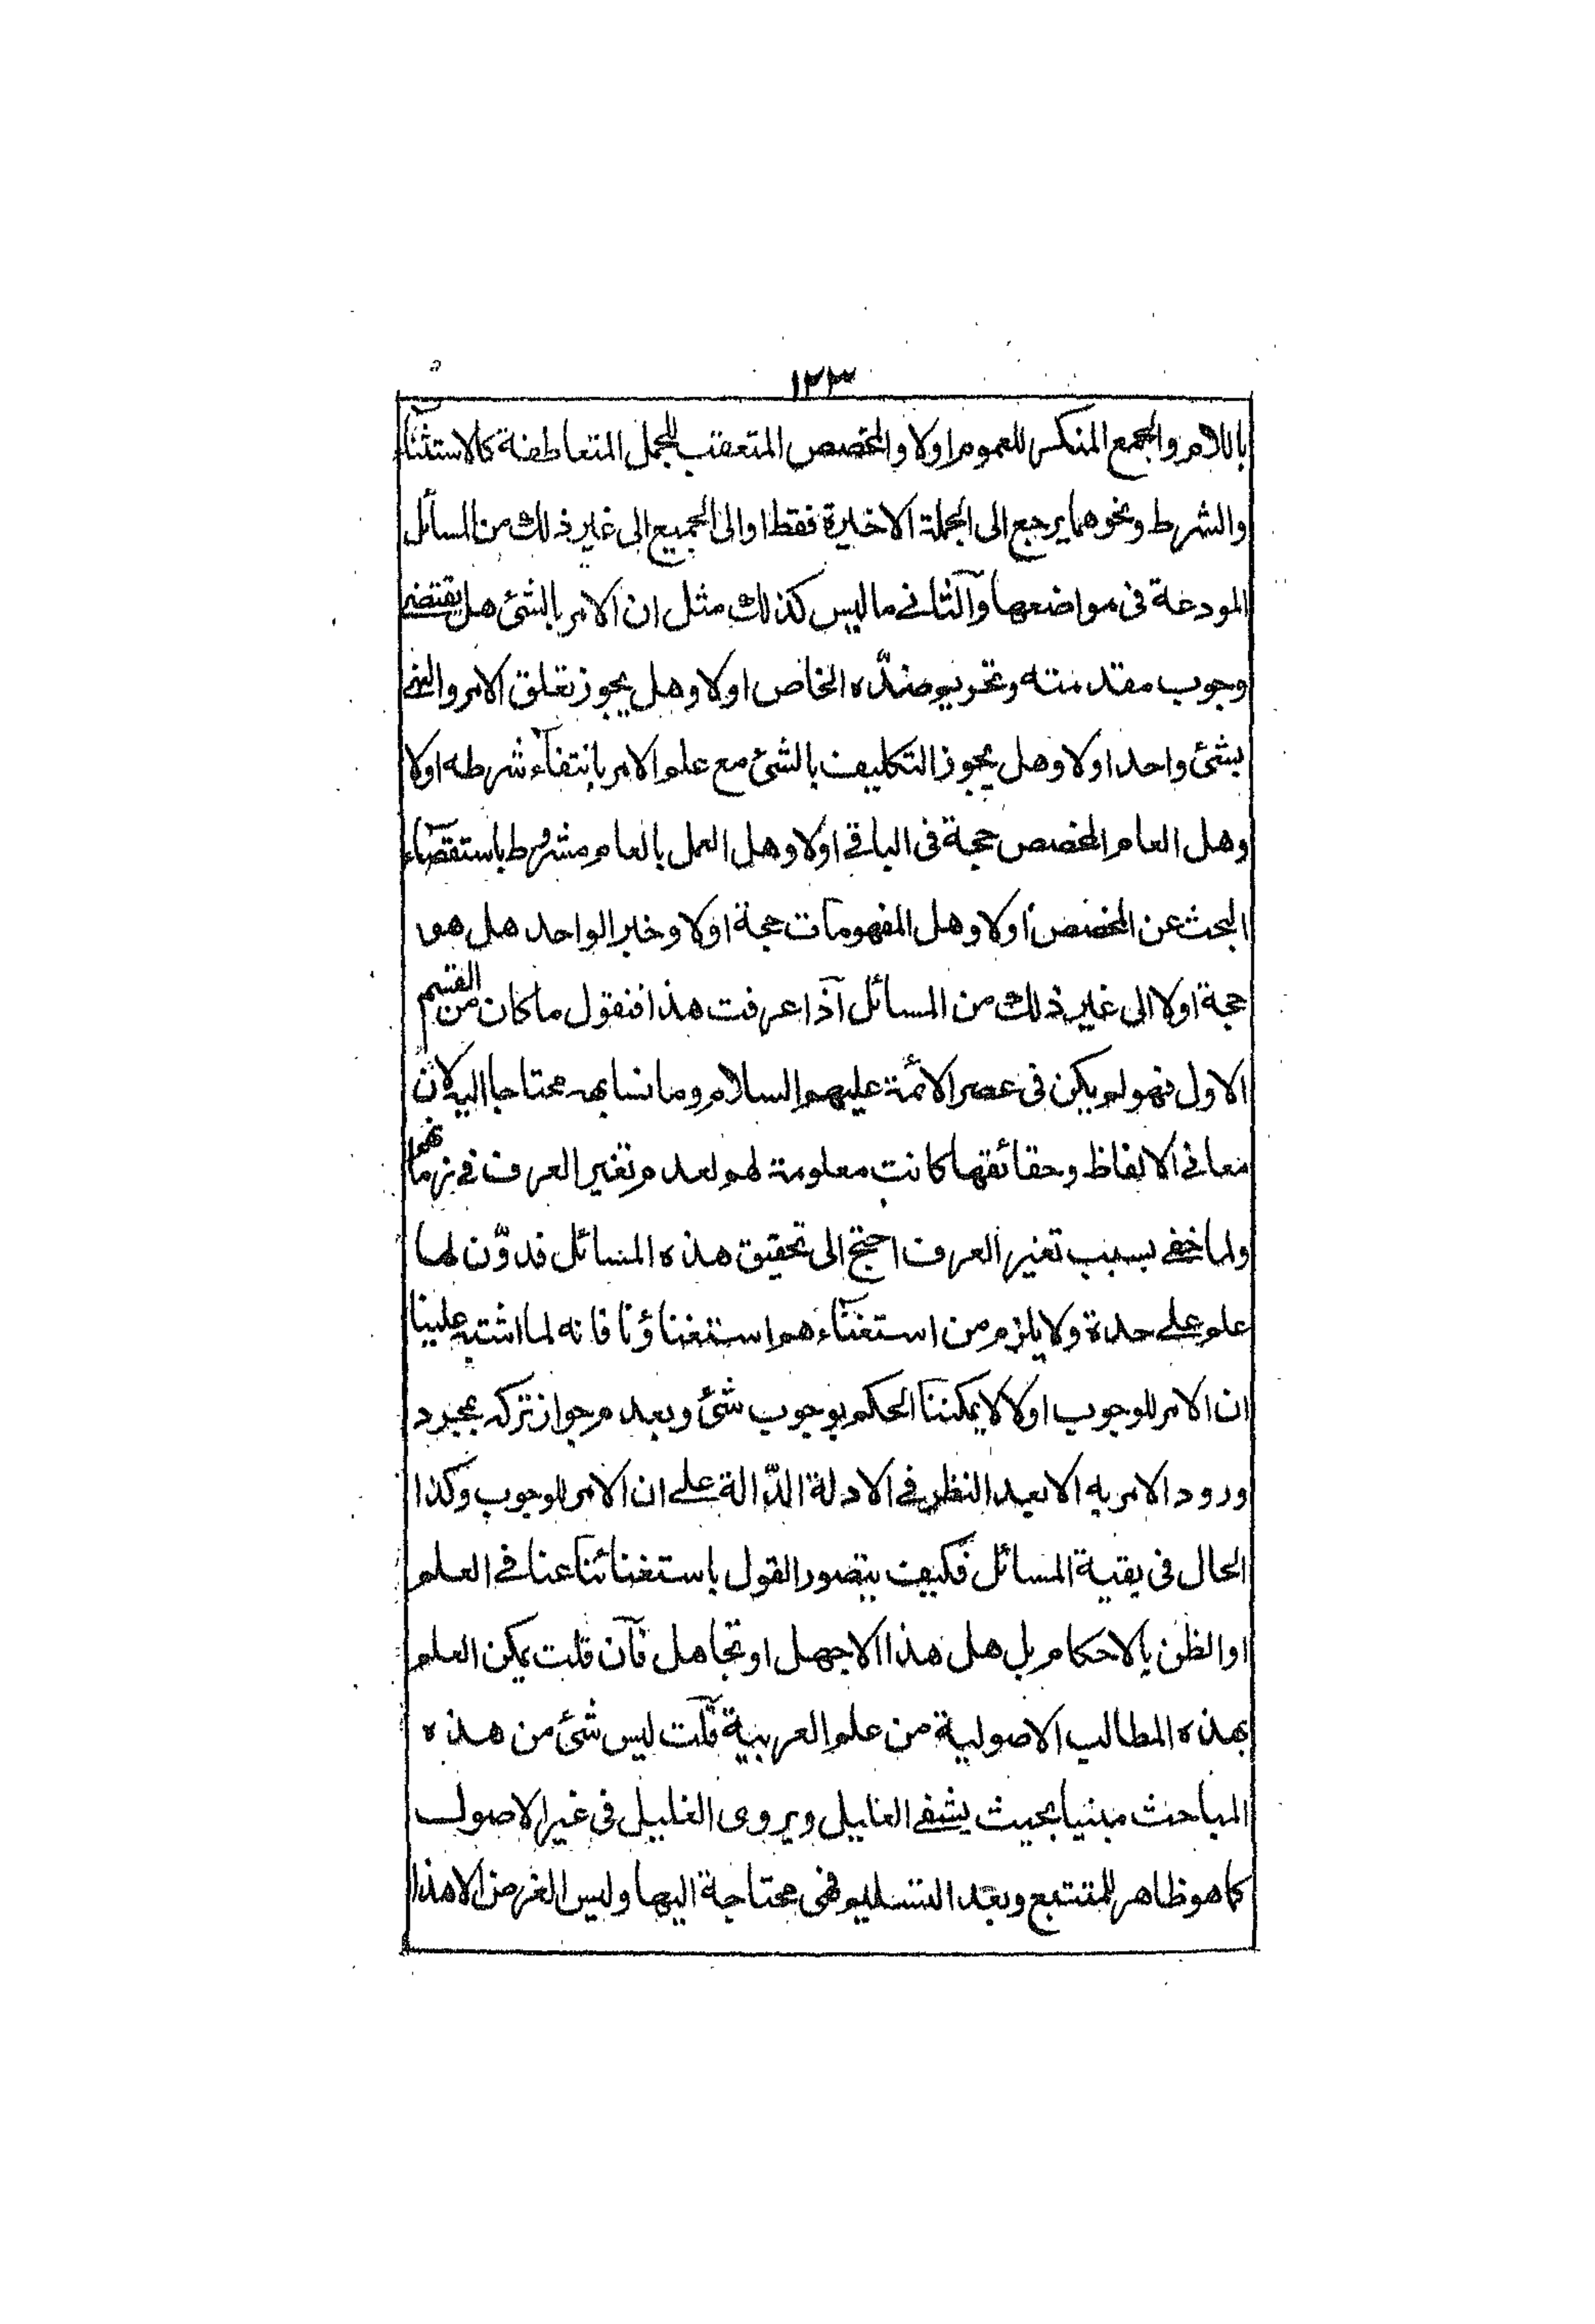 ١٢٣
باللام والجمع المنكر للعموم اولا والمخصص المتعقب للجمل المتعاطفة كالاستثنآء
والشرط ونحوهما يرجع الى الجملة الاخيرة فقط او الى الجميع الى غير ذلك من المسائل
المودعة فى مواضعها والثانے ما ليس كذلك مثل ان الامر بالشئ هل يقتضے
وجوب مقدمته وتحريم ضدّه الخاص اولا وهل يجوز تعلق الامر والنهے
بشئ واحد اولا وهل يجوز التكليف بالشئ مع علم الامر بانتفآء شرطه اولا
وهل العام المخصص حجة فى الباقے اولا وهل العمل بالعام مشروط باستقصآء
البحث عن المخصص اولا وهل المفهومات حجة اولا وخبر الواحد هل هو
حجة اولا الى غير ذلك من المسائل اذا عرفت هذا فنقول ما كان من القسم
الاول فهو لم يكن فى عصر الائمة عليهم السلام وما شابهه محتاجا اليه لان
معانے الالفاظ وحقائقها كانت معلومة لهم لعدم تغير العرف فے زمانهم
ولما خفے بسبب تغير العرف احتيج الى تحقيق هذه المسائل فدوّن لها
علم علے حدة ولا يلزم من استغنآءهم استغناؤنا فانه لما اشتبه علينا
ان الامر للوجوب اولا لا يمكننا الحكم بوجوب شئ وبعدم جواز تركه بمجرد
ورود الامر به الا بعد النظر فے الادلة الدّالة علے ان الامر للوجوب وكذا
الحال فى بقية المسائل فكيف يتصور القول باستغنائنا عنا فے العلم
او الظن بالاحكام بل هل هذا الا جهل او تجاهل فآن قلت يمكن العلم
بهذه المطالب الاصولية من علم العربية قلت ليس شئ من هذه
المباحث مبنيا بحيث يشفے العليل ويروى الغليل فى غير الاصول
كما هو ظاهر للمتتبع وبعد التسليم فهى محتاجة اليها وليس الغرض الا هذا